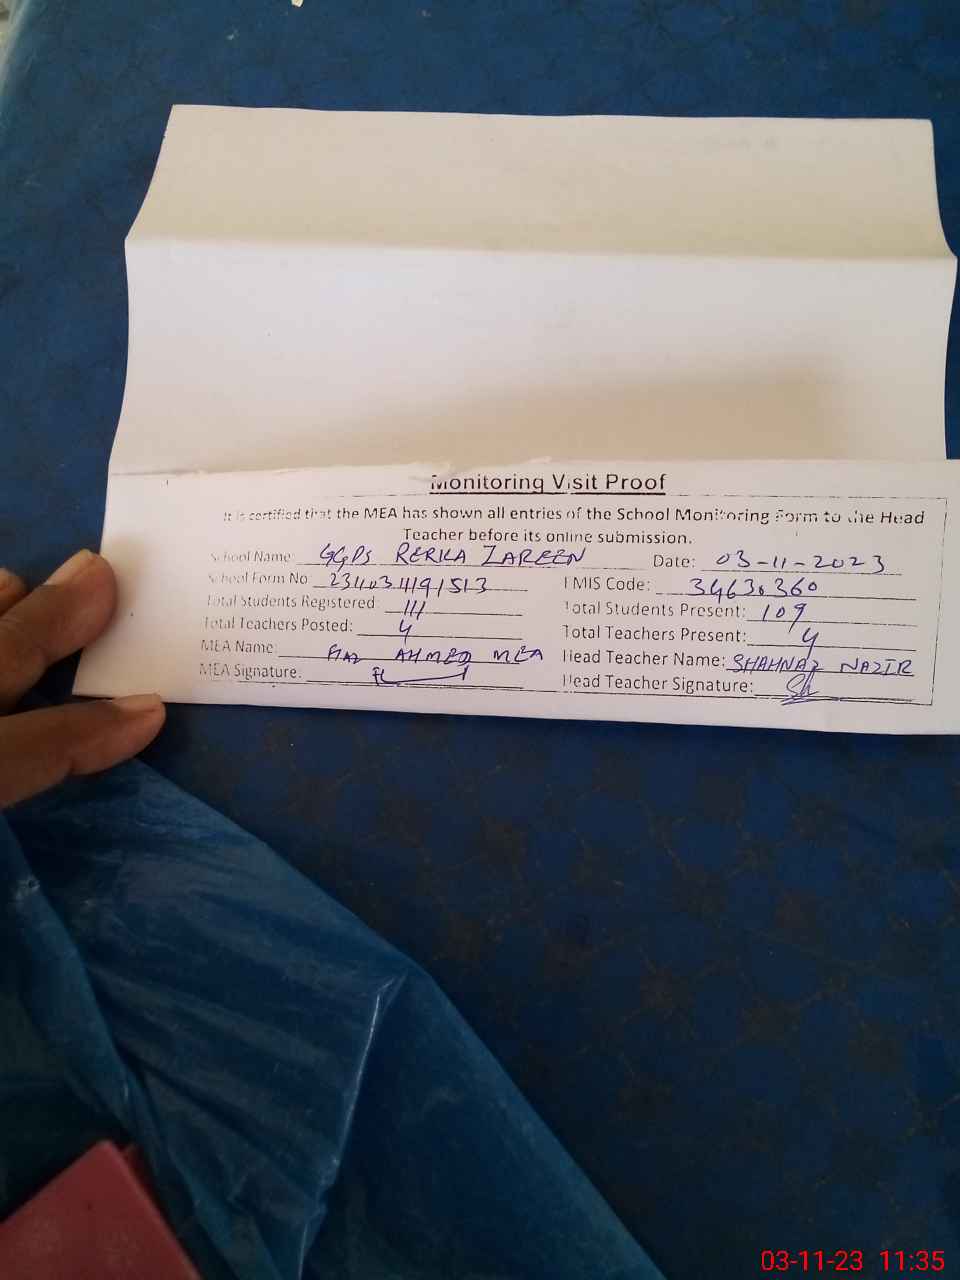 Monitoring Visit Proof
It is certified that the MEA has shown all entries of the School Monitoring Form to the Head
Teacher before its online submission.
School Name: GGPS RERKA ZAREEN Date: 03-11-2023
School Form No: 23403 1191513 EMIS Code: 34630360
Total Students Registered: 111 Total Students Present: 109
Total Teachers Posted: 4 Total Teachers Present: 4
MEA Name: AHMED MEA Head Teacher Name: SHAHNAZ NAZIR
MEA Signature: Head Teacher Signature:
03-11-23 11:35